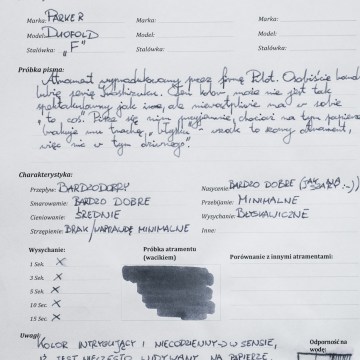 Marka: PARKER Marka: Marka:
Model: DUOFOLD Model: Model:
Stalówka: „F" Stalówka: Stalówka:
Próbka pisma:
Atrament wyprodukowany przez firmę Pilot. Osobiście bardzo
lubię serię Iroshizuku. Ten kolor może nie jest tak
spektakularny jak inne, ale niewątpliwie ma w sobie
"to coś". Pisze się nim przyjemnie, chociaż na tym papierze
brakuje mu trochę „błysku" - wszak to szary atrament,
więc nie w tym dziwnego.
Charakterystyka:
Przepływ: BARDZO DOBRY Nasycenie: BARDZO DOBRE (JAK NA SZARY :-))
Smarowanie: BARDZO DOBRE Przebijanie: MINIMALNE
Cieniowanie: ŚREDNIE Wysychanie: BŁYSKAWICZNE
Strzępienie: BRAK/NAPRAWDĘ MINIMALNE Inne:
Wysychanie: Próbka atramentu (wacikiem) Porównanie z innymi atramentami:
1 Sek. X
3 Sek. X
5 Sek. X
10 Sek. X
15 Sek. X
Uwagi: Odporność na wodę:
KOLOR INTRYGUJĄCY I NIECODZIENNY W SENSIE,
IŻ JEST NIECZĘSTO WIDYWANY NA PAPIERZE.